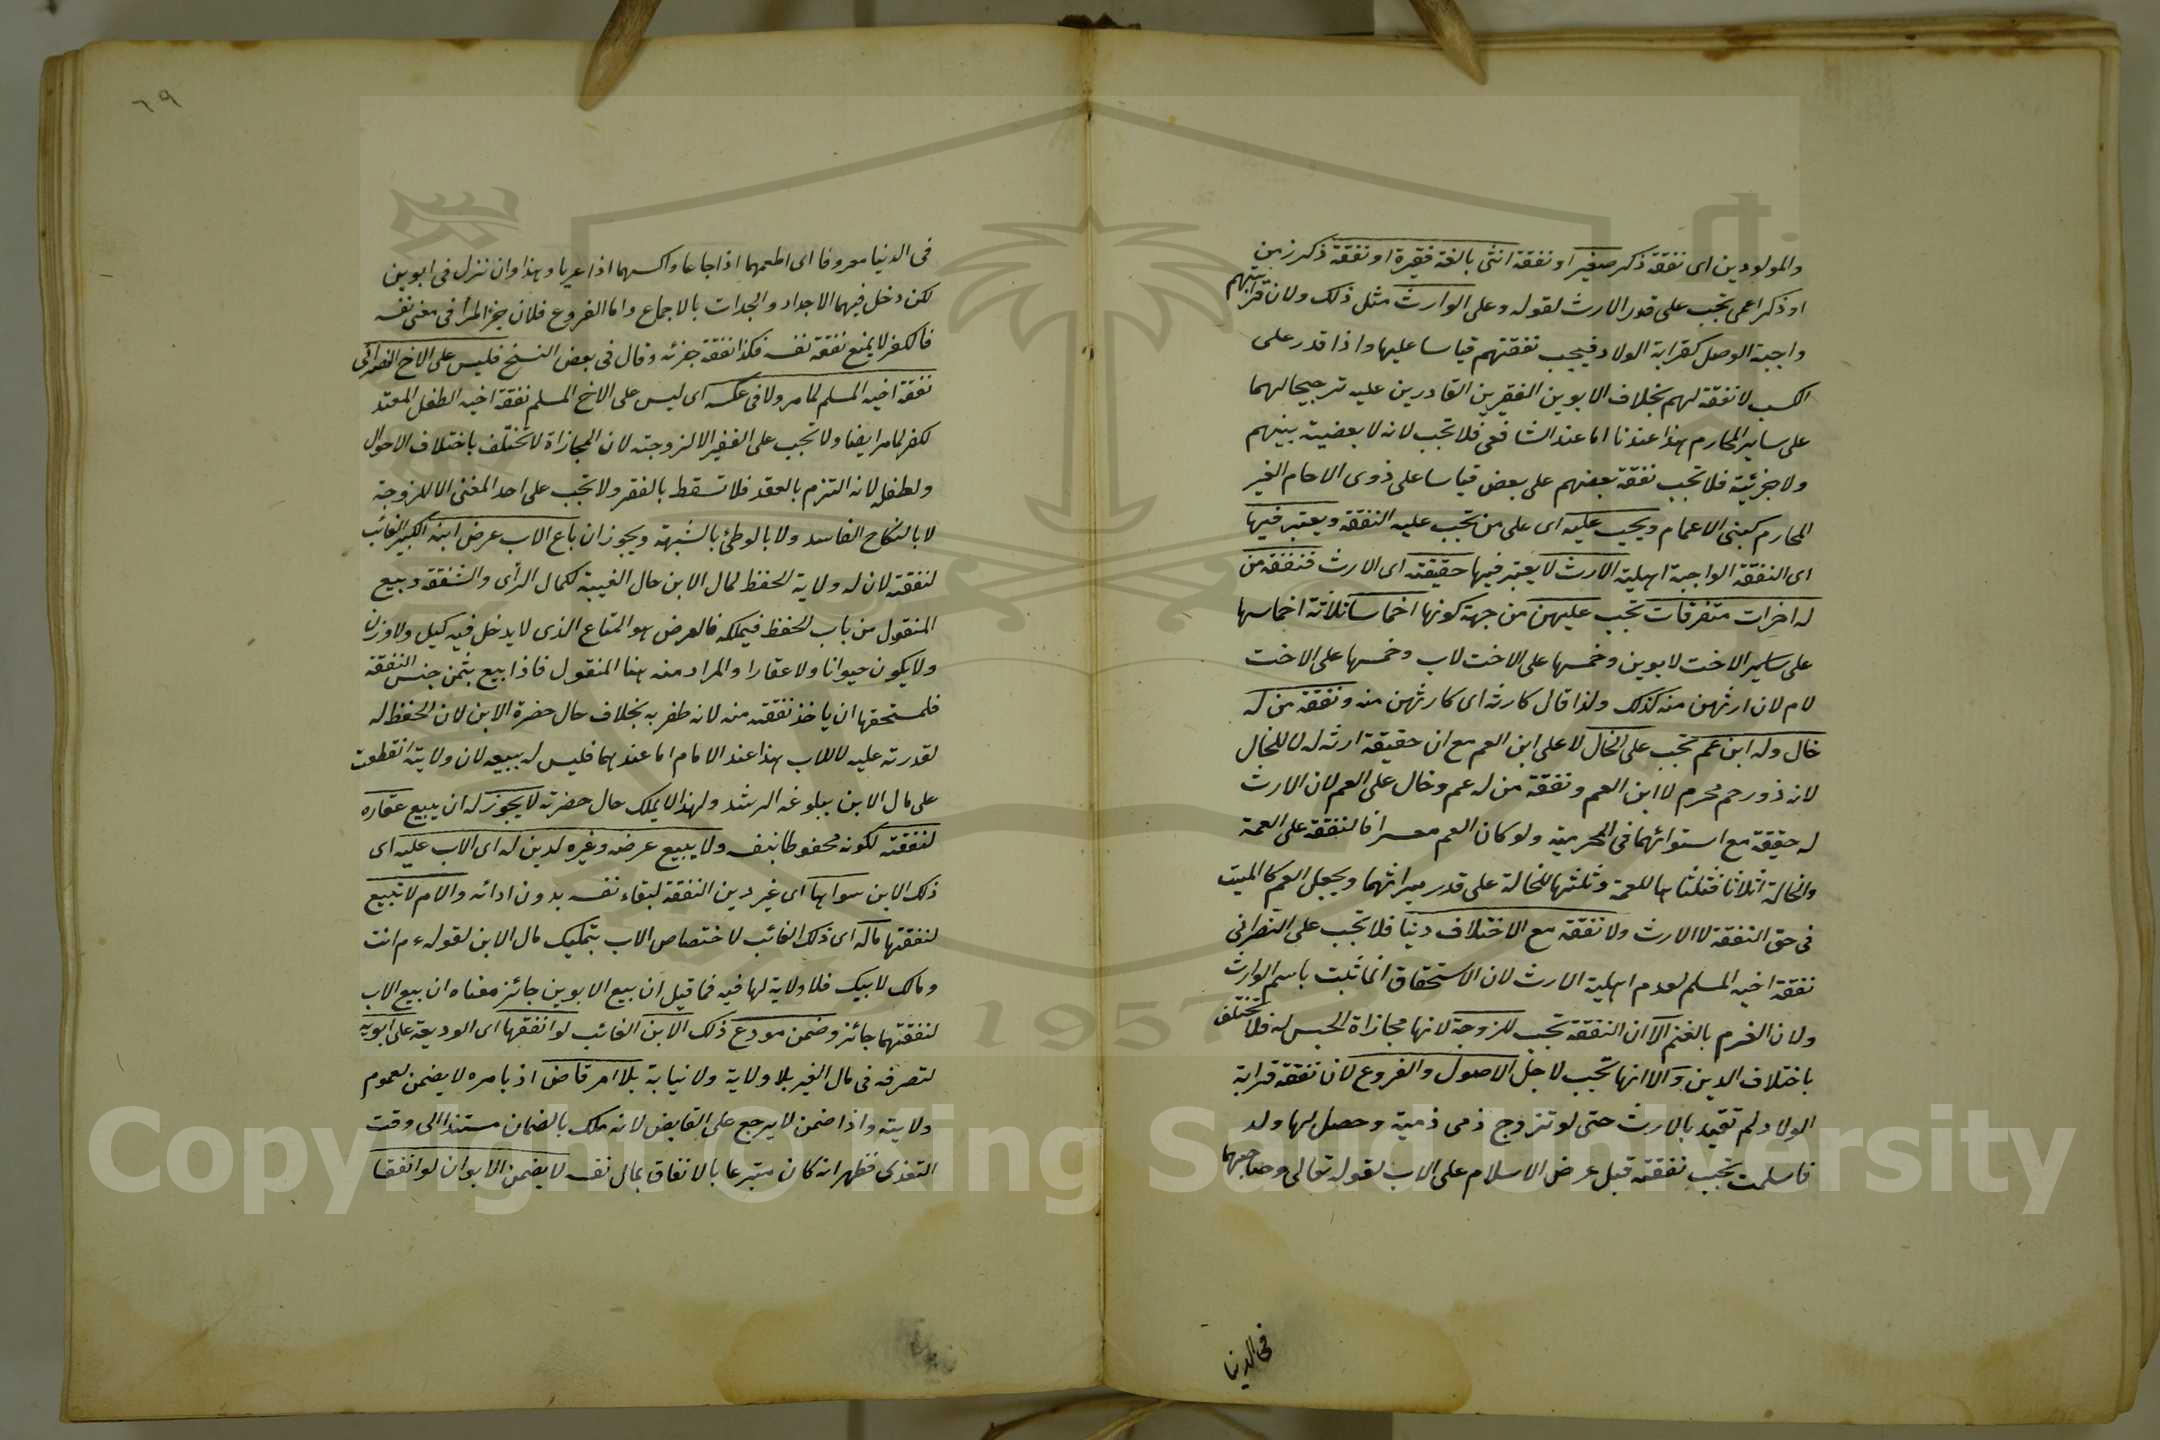 والمولودين اى نفقة ذكر صغير او نفقة انثى بالغة فقيرة او نفقة ذكر زمن
او ذكر اعمى تجب على قدر الارث لقوله وعلى الوارث مثل ذلك ولان قرابتهم
واجبة الوصل كقرابة الولاد فيجب نفقتهم قياسا عليها واذا قدر على
الكسب لا نفقة لهم بخلاف الابوين الفقيرين القادرين عليه ترجيحا لهما
على ساير المحارم هذا عندنا اما عند الشافعى فلا تجب لانه لا بعضية بينهم
ولا جزئية فلا تجب نفقة بعضهم على بعض قياسا على ذوى الارحام الغير
المحارم كبنى الاعمام ويجب عليه اى على من تجب عليه النفقة ويعتبر فيها
اى النفقة الواجبة اهلية الارث لا يعتبر فيها حقيقته اى الارث فنفقة من
له اخوات متفرقات تجب عليهن من جهة كونها اخماسا ثلاثة اخماسها
على ساير الاخت لابوين وخمسها على الاخت لاب وخمسها على الاخت
لام لان ارثهن منه كذلك ولذا قال كارثه اى كارثهن منه ونفقة من له
خال وله ابن عم تجب على الخال لا على ابن العم مع ان حقيقة ارثه له لا للخال
لانه ذو رحم محرم لا ابن العم ونفقة من له عم وخال على العم لان الارث
له حقيقة مع استوائهما فى المحرمية ولو كان العم معسرا فالنفقة على العمة
والخالة اثلاثا فثلثاها للعمة وثلثها للخالة على قدر ميراثهما ويجعل العم كالميت
فى حق النفقة لا الارث ولا نفقة مع الاختلاف دينا فلا تجب على النصرانى
نفقة اخيه المسلم لعدم اهلية الارث لان الاستحقاق انما ثبت باسم الوارث
ولان الغرم بالغنم الا ان النفقة تجب للزوجة لانها مجازاة الحبس له فلا تختلف
باختلاف الدين والا انها تجب لاجل الاصول والفروع لان نفقة قرابة
الولاد لم تقيد بالارث حتى لو تزوج ذمى ذمية وحصل لها ولد
فاسلمت تجب نفقته قبل عرض الاسلام على الاب لقوله تعالى وصاحبهما
فى الدنيا
٦٩
فى الدنيا معروفا اى اطعمهما اذا جاعا واكسهما اذا عريا وهذا وان نزل فى ابوين
لكن دخل فيهما الاجداد والجدات بالاجماع واما الفروع فلان جزء المرأ فى معنى نفسه
فالكفر لا يمنع نفقة نفسه فكذا نفقة جزئه وقال فى بعض النسخ فليس على الاخ النصرانى
نفقة اخيه المسلم لما مر ولا فى عكسه اى ليس على الاخ المسلم نفقة اخيه الطفل المعتد
لكفر لما مر ايضا ولا تجب على الفقير الا لزوجته لان المجازاة لا تختلف باختلاف الاحوال
ولطفله لانه التزم بالعقد فلا تسقط بالفقر ولا تجب على احد المغنى الا للزوجة
لا بالنكاح الفاسد ولا بالوطئ بالشبهة ويجوز ان باع الاب عرض ابنه الكبير الغائب
لنفقته لان له ولاية الحفظ لمال الابن حال الغيبة لكمال الرأى والشفقة وبيع
المنقول من باب الحفظ فيملكه فالعرض هو المتاع الذى لا يدخل فيه كيل ولا وزن
ولا يكون حيوانا ولا عقارا والمراد منه هنا المنقول فاذا بيع بثمن جنس النفقة
فلمستحقها ان ياخذ نفقته منه لانه ظفر به بخلاف حال حضرة الابن لان الحفظ له
لقدرته عليه لا للاب هذا عند الامام اما عندهما فليس له بيعه لان ولايته انقطعت
على مال الابن ببلوغه الرشد ولهذا لا يملك حال حضرته لا يجوز له ان يبيع عقاره
لنفقته لكونه محفوظا بنفسه ولا يبيع عرضه وغيره لدين له اى الاب عليه اى
ذلك الابن سواها اى غير دين النفقة لبقاء نفسه بدون ادائه والام لا تبيع
لنفقتها ماله اى ذلك الغائب لاختصاص الاب بتمليك مال الابن لقوله ءم انت
ومالك لابيك فلا ولاية لها فيه فما قيل ان بيع الابوين جائز معناه ان بيع الاب
لنفقتهما جائز وضمن مودع ذلك الابن الغائب لو انفقها اى الوديعة على ابويه
لتصرفه فى مال الغير بلا ولاية ولا نيابة بلا امر قاض اذ بامره لا يضمن لعموم
ولايته واذا ضمن لا يرجع على القابض لانه ملك بالضمان مستندا الى وقت
التعدى فظهر انه كان متبرعا بالانفاق بمال نفسه لا يضمن الابوان لو انفقا
1957
Copyright © King Saud University